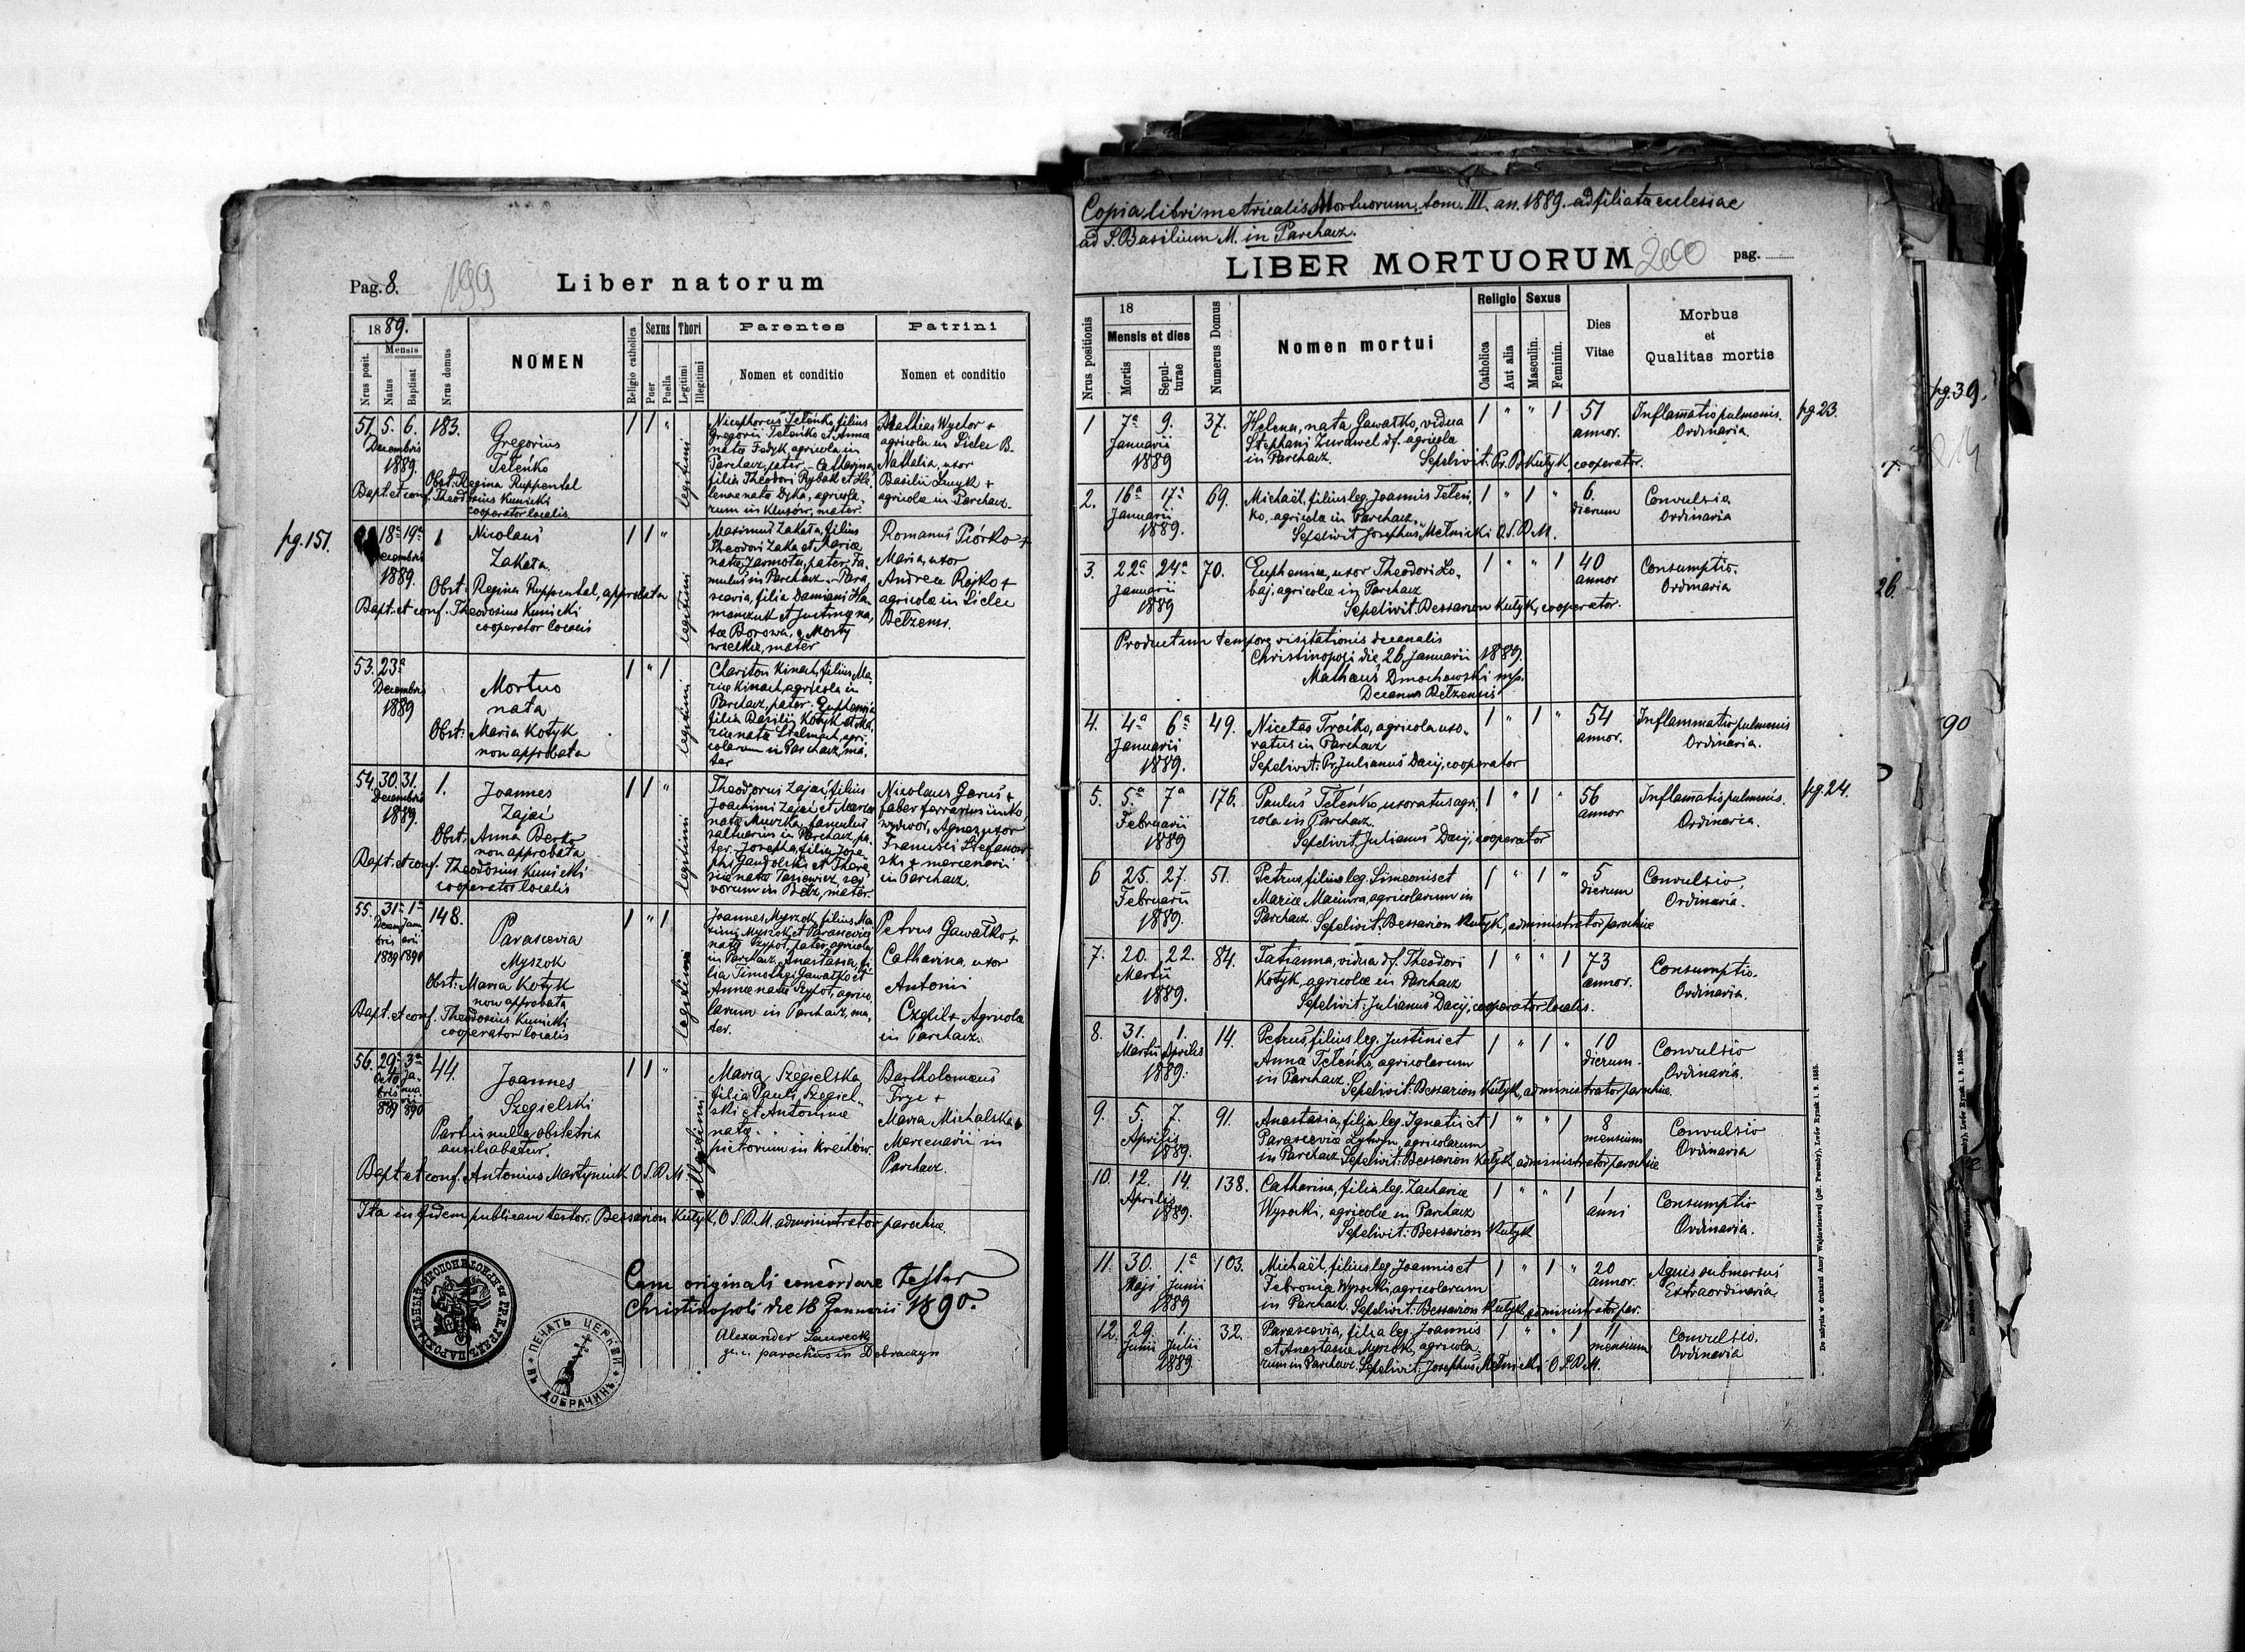 Pag. 8.
199
Liber natorum
1889.
Mensis
Nrus posit.
Natus
Baptisat
Nrus domus
NOMEN
Religio catholica
Sexus
Puer
Puella
Thori
Legitimi
Illegitimi
Parentes
Nomen et conditio
Patrini
Nomen et conditio
51. 5. 6. 183.
Decembris
1889.
Gregorius
Teleńko
Obst: Regina Ruppental
Bapt. et conf. Theodosius Kunicki
cooperator localis
1 1 "
legitimi
Nicephorus Teleńko, filius
Gregorii Teleńko et Annae
natae Fedyk, agricola in
Parchacz, pater, Catharina
filia Theodori Rybak et He
lenae natae Dyka, agricola
rum in Klusów, mater.
Mathias Wyctor +
agricola in Sielec B.
Nathalia, uxor
Basilii Smyk +
agricolae in Parchacz.
pg. 151.
18a 19a 1
Decembris
1889.
Nicolaus
Zakała.
Obst: Regina Ruppental, approbata
Bapt. et conf. Theodosius Kunicki
cooperator localis
1 1 "
legitimi
Maximus Zakała, filius
Theodori Zaka et Mariae
natae Jarmoła, pater, fa
mulus in Parchacz. Para
scevia, filia Damiani Ha
manczuk et Justinae na
tae Borowa, e Mosty
wielkie, mater
Romanus Piórko +
Maria, uxor
Andreae Rojko +
agricolae in Sielec
Bełzensi.
53. 23a
Decembris
1889
Mortuo
nata
Obst: Maria Kotyk
non approbata
1 " 1
legitimi
Chariton Kinach, filius Ma
riae Kinach, agricola in
Parchacz, pater. Euphemia
filia Basilii Kotyk et Ma
riae natae Stelmach, agri
colarum in Parchacz, ma
ter
54. 30. 31. 1.
Decembris
1889.
Joannes
Zając
Obst. Anna Berko
non approbata
Bapt. et conf. Theodosius Kunicki
cooperator localis
1 1 "
legitimi
Theodorus Zając, filius
Joachimi Zając et Mariae
natae Muzyka, famulus
saltuarius in Parchacz, pa
ter. Josepha, filia Jose
phi Gandolski et There
siae natae Tasiewicz, ser
vorum in Bełz, mater.
Nicolaus Garus +
faber ferrarius in
Agnes, uxor
Francisci Stefanow
ski + mercenarii
in Parchacz.
55. 31a 1a 148.
Decem Janu
bris arii
1889 1890
Parascevia
Myszok
Obst: Maria Kotyk
non approbata
Bapt. et conf. Theodosius Kunicki
cooperator localis
1 " 1
legitimi
Joannes Myszok, filius Ma
ximi Myszok et Parasceviae
natae Szypot, pater, agricola
in Parchacz. Anastasia, fi
lia Timothei Gawałko et
Annae natae Szypot, agrico
larum in Parchacz, ma
ter.
Petrus Gawałko +
Catharina, uxor
Antonii
Czglil + Agricolae
in Parchacz.
56. 29a 3a 44.
Octo Ja
bris nua
rii
889 890
Joannes
Szegielski
Partui nulla obstetrix
auxiliabatur.
Bapt. et conf. Antonius Martyniuk O.S.B.M.
1 1 "
illegitimi
Maria Szegielska,
filia Pauli Szegiel
ski et Antoninae
natae
pictorum in Krechów.
Bartholomeus
Fryc +
Maria Michalska
Mercenarii in
Parchacz.
Ita in fidem publicam testor. Bessarion Kułyk, O.S.B.M. administrator parochiae.
Cum originali concordare testor
Christinopoli die 18 Januarii 1890.
Alexander Laurecki
gr. c. parochus in Dobraczyn
ПЕЧАТЬ ЦЕРКВИ
ДОБРАЧИНѢ
Copia libri metricalis Mortuorum, tom. III. an. 1889. ad filiatae ecclesiae
ad S. Basilium M. in Parchacz.
LIBER MORTUORUM
200
pag.
Nrus positionis
18
Mensis et dies
Mortis
Sepulturae
Numerus Domus
Nomen mortui
Religio
Catholica
Aut alia
Sexus
Masculin.
Feminin.
Dies
Vitae
Morbus
et
Qualitas mortis
1 7a 9. 37.
Januarii
1889
Helena, nata Gawałko, vidua
Stephani Żurawel df. agricolae
in Parchacz. Sepelivit: Pr. B. Kułyk, cooperator.
1 " " 1
51
annor.
Inflamatio pulmonis.
Ordinaria.
pg. 23.
2. 16a 17a 69.
Januarii
1889.
Michaël, filius leg. Joannis Teleń
ko, agricola in Parchacz.
Sepelivit Josephus Mełnicki O.S.B.M.
1 " 1 "
6.
dierum
Convulsio
Ordinaria
3. 22a 24a 70.
Januarii
1889
Euphemia, uxor Theodori Ło
baj, agricolae in Parchacz
Sepelivit. Bessarion Kułyk, cooperator.
1 " " 1
40
annor
Consumptio.
Ordinaria
Productum tempore visitationis decanalis
Christinopoli die 26 Januarii 1889.
Matheus Dmochowski mp.
Decanus Bełzensis
4. 4a 6a 49.
Januarii
1889.
Nicetas Troćko, agricola uxo
ratus in Parchacz
Sepelivit: Pr. Julianus Dacij, cooperator
1 " 1 "
54
annor.
Inflammatio pulmonis
Ordinaria.
5. 5a 7a 176.
Februarii
1889
Paulus Teleńko, uxoratus agri
cola in Parchacz.
Sepelivit Julianus Dacij, cooperator
1 " 1 "
56
annor
Inflamatio pulmonis.
Ordinaria.
pg. 24.
6 25. 27. 51.
Februarii
1889.
Petrus, filius leg. Simeonis et
Mariae Maciura, agricolarum in
Parchacz. Sepelivit: Bessarion Kułyk, administrator parochiae
1 " 1 "
5
dierum
Convulsio,
Ordinaria.
7. 20. 22. 84.
Martii
1889.
Tatianna, vidua df. Theodori
Kotyk, agricolae in Parchacz
Sepelivit: Julianus Dacij, cooperator localis.
1 " " 1
73
annor.
Consumptio.
Ordinaria.
8. 31. 1. 14.
Martii Aprilis
1889.
Petrus, filius leg. Justini et
Anna Teleńko, agricolarum
in Parchacz. Sepelivit: Bessarion Kułyk, administrator parochiae.
1 " 1 "
10
dierum.
Convulsio
Ordinaria.
9. 5. 7. 91.
Aprilis
1889.
Anastasia, filia leg. Ignatii et
Parasceviae Łytwyn, agricolarum
in Parchacz. Sepelivit: Bessarion Kułyk, administrator parochiae
1 " " 1
8
mensium
Convulsio
Ordinaria
10. 12. 14. 138.
Aprilis
1889.
Catharina, filia leg. Zachariae
Wysocki, agricolae in Parchacz
Sepelivit: Bessarion Kułyk
1 " " 1
1
anni
Consumptio
Ordinaria.
11. 30. 1a 103.
Maji Junii
1889
Michaël, filius leg. Joannis et
Febronia Wysocki, agricolarum
in Parchacz. Sepelivit: Bessarion Kułyk, administrator par.
1 " 1 "
20
annor.
Aquis submersus
Extraordinaria
12. 29. 1. 32.
Junii Julii
1889
Parascevia, filia leg. Joannis
et Anastasiae Myszok, agricola
rum in Parchacz. Sepelivit: Josephus Mełnicki O.S.B.M.
1 " " 1
11
mensium
Convulsio.
Ordinaria
Do nabycia w drukarni Anny Wajdowiczowej (pft. Poremby), Lwów Rynek l. 9. 1885.
pg. 39.
7.
26.
90